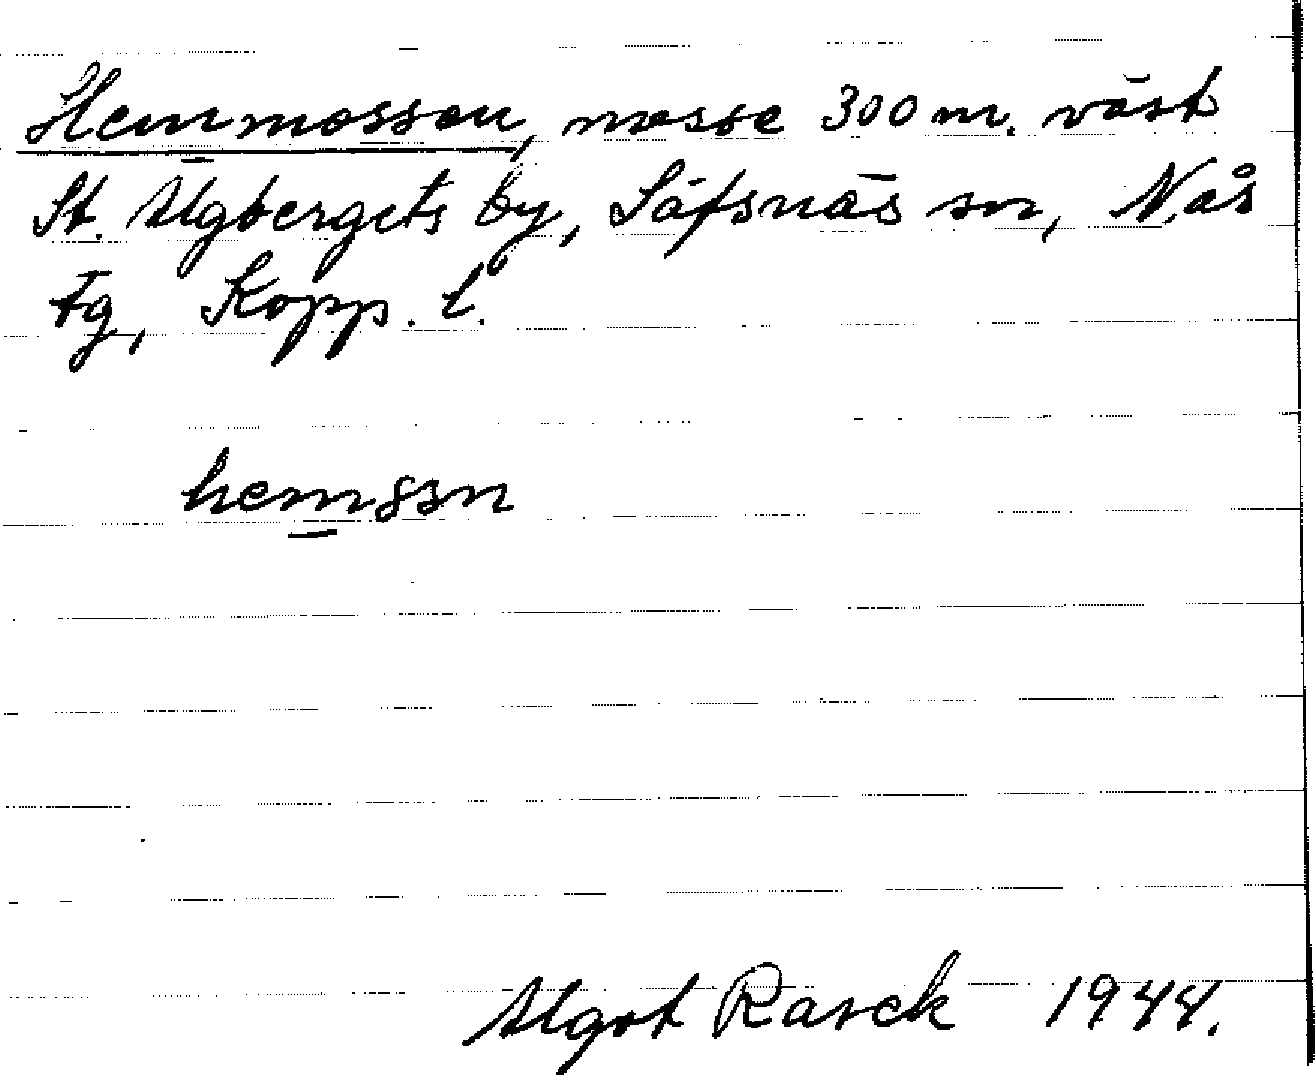 Hemmossen, mosse 300 m. väst
St. Älgbergets by, Säfsnäs sn, Nås
tg, Kopp. l.
hemssn
Algot Rasck 1944.